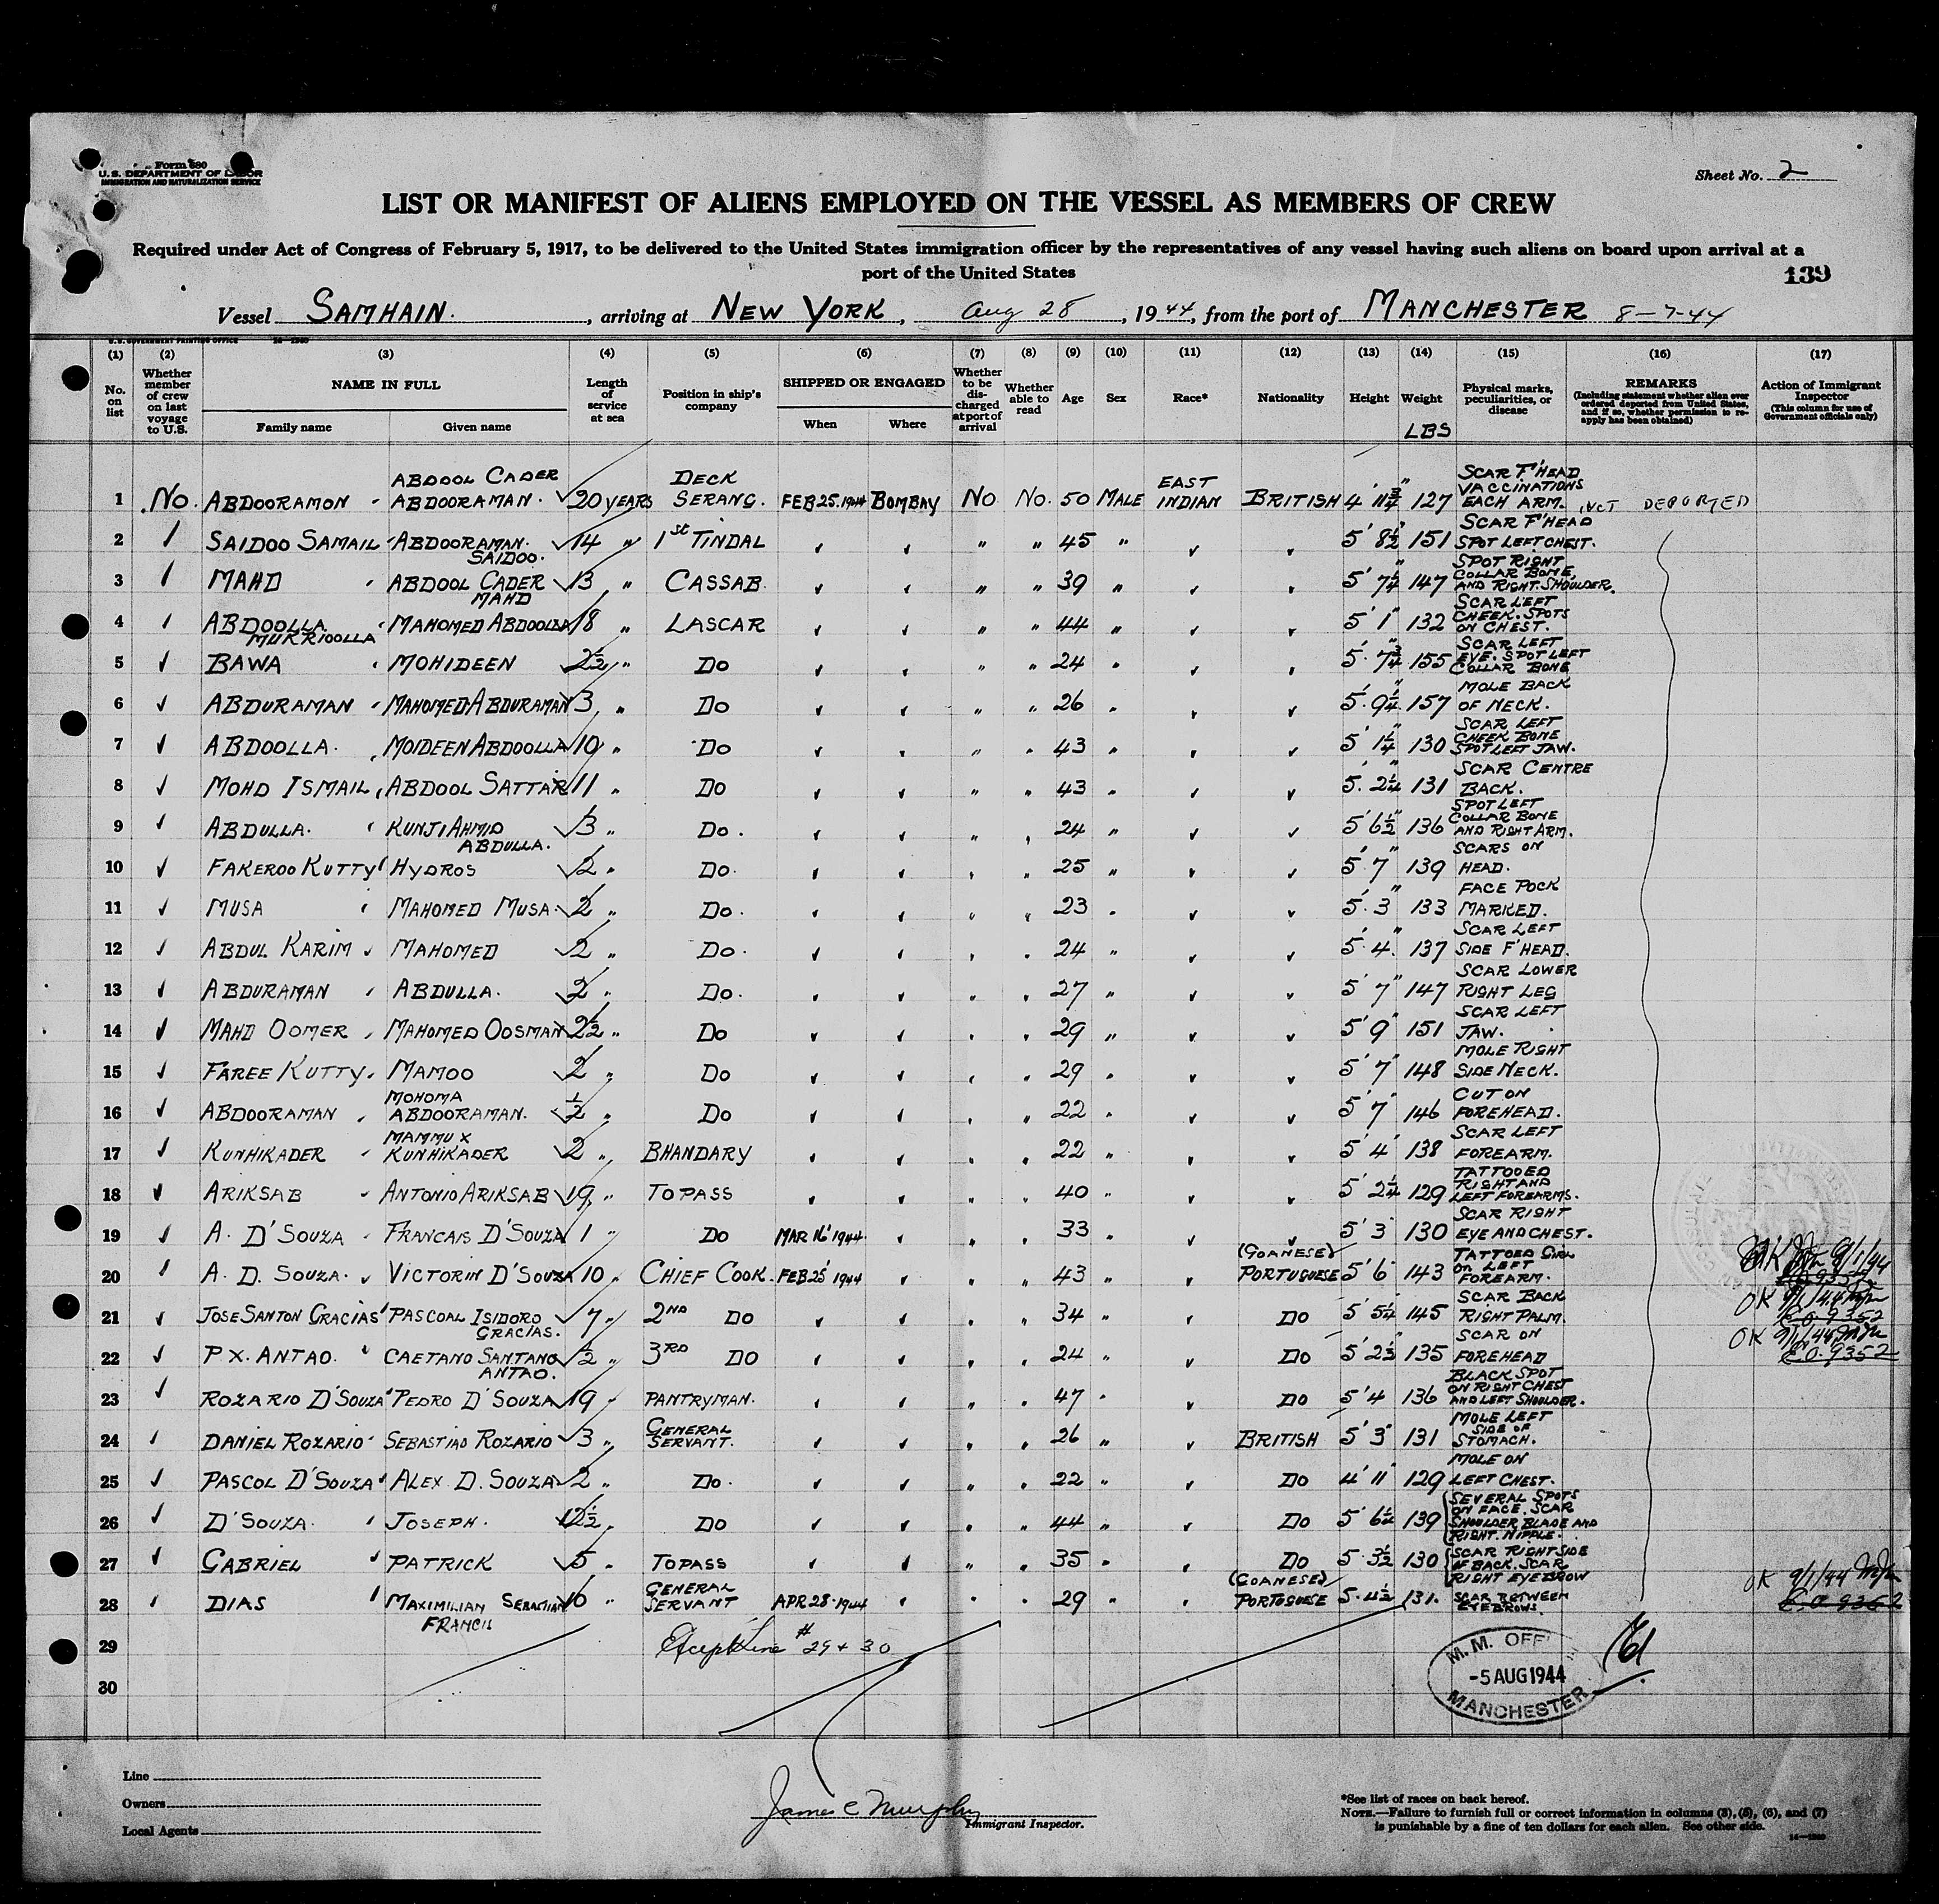 Form 680
U.S. DEPARTMENT OF LABOR
IMMIGRATION AND NATURALIZATION SERVICE
Sheet No. 2
LIST OR MANIFEST OF ALIENS EMPLOYED ON THE VESSEL AS MEMBERS OF CREW
Required under Act of Congress of February 5, 1917, to be delivered to the United States immigration officer by the representatives of any vessel having such aliens on board upon arrival at a
port of the United States
139
Vessel SAMHAIN., arriving at NEW YORK, Aug 28, 1944, from the port of MANCHESTER 8-7-44
U.S. GOVERNMENT PRINTING OFFICE
(1) (2) (3) (4) (5) (6) (7) (8) (9) (10) (11) (12) (13) (14) (15) (16) (17)
No. on list
Whether member of crew on last voyage to U.S.
NAME IN FULL
Family name Given name
Length of service at sea
Position in ship's company
SHIPPED OR ENGAGED
When Where
Whether to be discharged at port of arrival
Whether able to read
Age Sex Race* Nationality Height Weight LBS
Physical marks, peculiarities, or disease
REMARKS
(Including statement whether alien ever ordered deported from United States, and if so, whether permission to reapply has been obtained)
Action of Immigrant Inspector
(This column for use of Government officials only)
1 No. ABDOORAMON ABDOOL CADER ABDOORAMAN. 20 YEARS DECK SERANG. FEB 25. 1944 BOMBAY No No. 50 MALE EAST INDIAN BRITISH 4' 11 3/4" 127 SCAR F'HEAD VACCINATIONS EACH ARM. NOT DEPORTED
2 SAIDOO SAMAIL ABDOORAMAN. SAIDOO. 14 " 1st TINDAL " " 45 " 5' 8 1/2" 151 SCAR F'HEAD SPOT LEFT CHEST.
3 MAHD ABDOOL CADER MAHD 13 " CASSAB. " " 39 " 5' 7 1/4" 147 SPOT RIGHT COLLAR BONE, AND RIGHT SHOULDER.
4 ABDOOLLA MUKRIOOLLA MAHOMED ABDOOLLA 18 " LASCAR " " 44 " 5' 1" 132 SCAR LEFT CHEEK. SPOTS ON CHEST.
5 BAWA MOHIDEEN 2 1/2 " Do " " 24 " 5' 7 3/4" 155 SCAR LEFT EYE. SPOT LEFT COLLAR BONE
6 ABDURAMAN MAHOMED ABDURAMAN 3 " Do " " 26 " 5' 9 1/4" 157 MOLE BACK OF NECK.
7 ABDOOLLA. MOIDEEN ABDOOLLA 10 " Do " " 43 " 5' 1 1/4" 130 SCAR LEFT CHEEK BONE SPOT LEFT JAW.
8 MOHD ISMAIL ABDOOL SATTAR 11 " Do " " 43 " 5' 2 1/4" 131 SCAR CENTRE BACK.
9 ABDULLA. KUNJI AHMID ABDULLA. 3 " Do. " " 24 " 5' 6 1/2" 136 SPOT LEFT COLLAR BONE AND RIGHT ARM.
10 FAKEROO KUTTY HYDROS 2 " Do. " " 25 " 5' 7" 139 SCARS ON HEAD.
11 MUSA MAHOMED MUSA. 2 " Do. " " 23 " 5' 3" 133 FACE POCK MARKED.
12 ABDUL KARIM MAHOMED 2 " Do. " " 24 " 5' 4" 137 SCAR LEFT SIDE F'HEAD.
13 ABDURAMAN ABDULLA. 2 " Do. " " 27 " 5' 7" 147 SCAR LOWER RIGHT LEG
14 MAHD OOMER MAHOMED OOSMAN 2 1/2 " Do " " 29 " 5' 9" 151 SCAR LEFT JAW.
15 FAREE KUTTY. MAMOO 2 " Do " " 29 " 5' 7" 148 MOLE RIGHT SIDE NECK.
16 ABDOORAMAN MOHOMA ABDOORAMAN. 1/2 " Do " " 22 " 5' 7" 146 CUT ON FOREHEAD.
17 KUNHIKADER MAMMU X KUNHIKADER 2 " BHANDARY " " 22 " 5' 4" 138 SCAR LEFT FOREARM.
18 ARIKSAB ANTONIO ARIKSAB 19 " TOPASS " " 40 " 5' 2 1/4" 129 TATTOOED RIGHT AND LEFT FOREARMS.
19 A. D'SOUZA FRANCAIS D'SOUZA 1 " Do MAR 16' 1944 " " 33 " 5' 3 130 SCAR RIGHT EYE AND CHEST.
20 A. D. SOUZA. VICTORIN D'SOUZA 10 " CHIEF COOK. FEB 25' 1944 " " 43 " (GOANESE) PORTUGUESE 5' 6" 143 TATTOED GIRL ON LEFT FOREARM. OK 9/1/44 E.O. 9352
21 JOSE SANTON GRACIAS PASCOAL ISIDORO GRACIAS. 7 " 2ND DO " " 34 " DO 5' 5 1/4" 145 SCAR BACK RIGHT PALM. OK 9/1/44 E.O. 9352
22 P. X. ANTAO. CAETANO SANTANO ANTAO. 1/2 " 3RD DO " " 24 " DO 5' 2 1/2" 135 SCAR ON FOREHEAD OK 9/1/44 E.O. 9352
23 ROZARIO D'SOUZA PEDRO D'SOUZA 19 " PANTRYMAN. " " 47 " DO 5' 4 136 BLACK SPOT ON RIGHT CHEST AND LEFT SHOULDER.
24 DANIEL ROZARIO SEBASTIAO ROZARIO 3 " GENERAL SERVANT. " " 26 " BRITISH 5' 3" 131 MOLE LEFT SIDE OF STOMACH.
25 PASCOL D'SOUZA ALEX. D. SOUZA 2 " Do. " " 22 " DO 4' 11" 129 MOLE ON LEFT CHEST.
26 D'SOUZA. JOSEPH. 12 1/2 " DO " " 44 " DO 5' 6 1/4 139 SEVERAL SPOTS ON FACE. SCAR SHOULDER BLADE AND RIGHT. NIPPLE.
27 GABRIEL PATRICK 5 " TOPASS " " 35 " DO 5. 3 1/2 130 SCAR RIGHT SIDE OF BACK. SCAR RIGHT EYEBROW
28 DIAS MAXIMILIAN SEBASTIAN FRANCIS 10 " GENERAL SERVANT APR 28. 1944 " " 29 " (GOANESE) PORTUGUESE 5. 4 1/2 131. SCAR BETWEEN EYEBROWS. OK 9/1/44 E.O. 9352
29 Except Line # 29 + 30
30
M. M. OFFICE
-5 AUG 1944
MANCHESTER
Line
Owners
Local Agents
James C Murphy
Immigrant Inspector.
*See list of races on back hereof.
NOTE.—Failure to furnish full or correct information in columns (3), (5), (6), and (7)
is punishable by a fine of ten dollars for each alien. See other side.